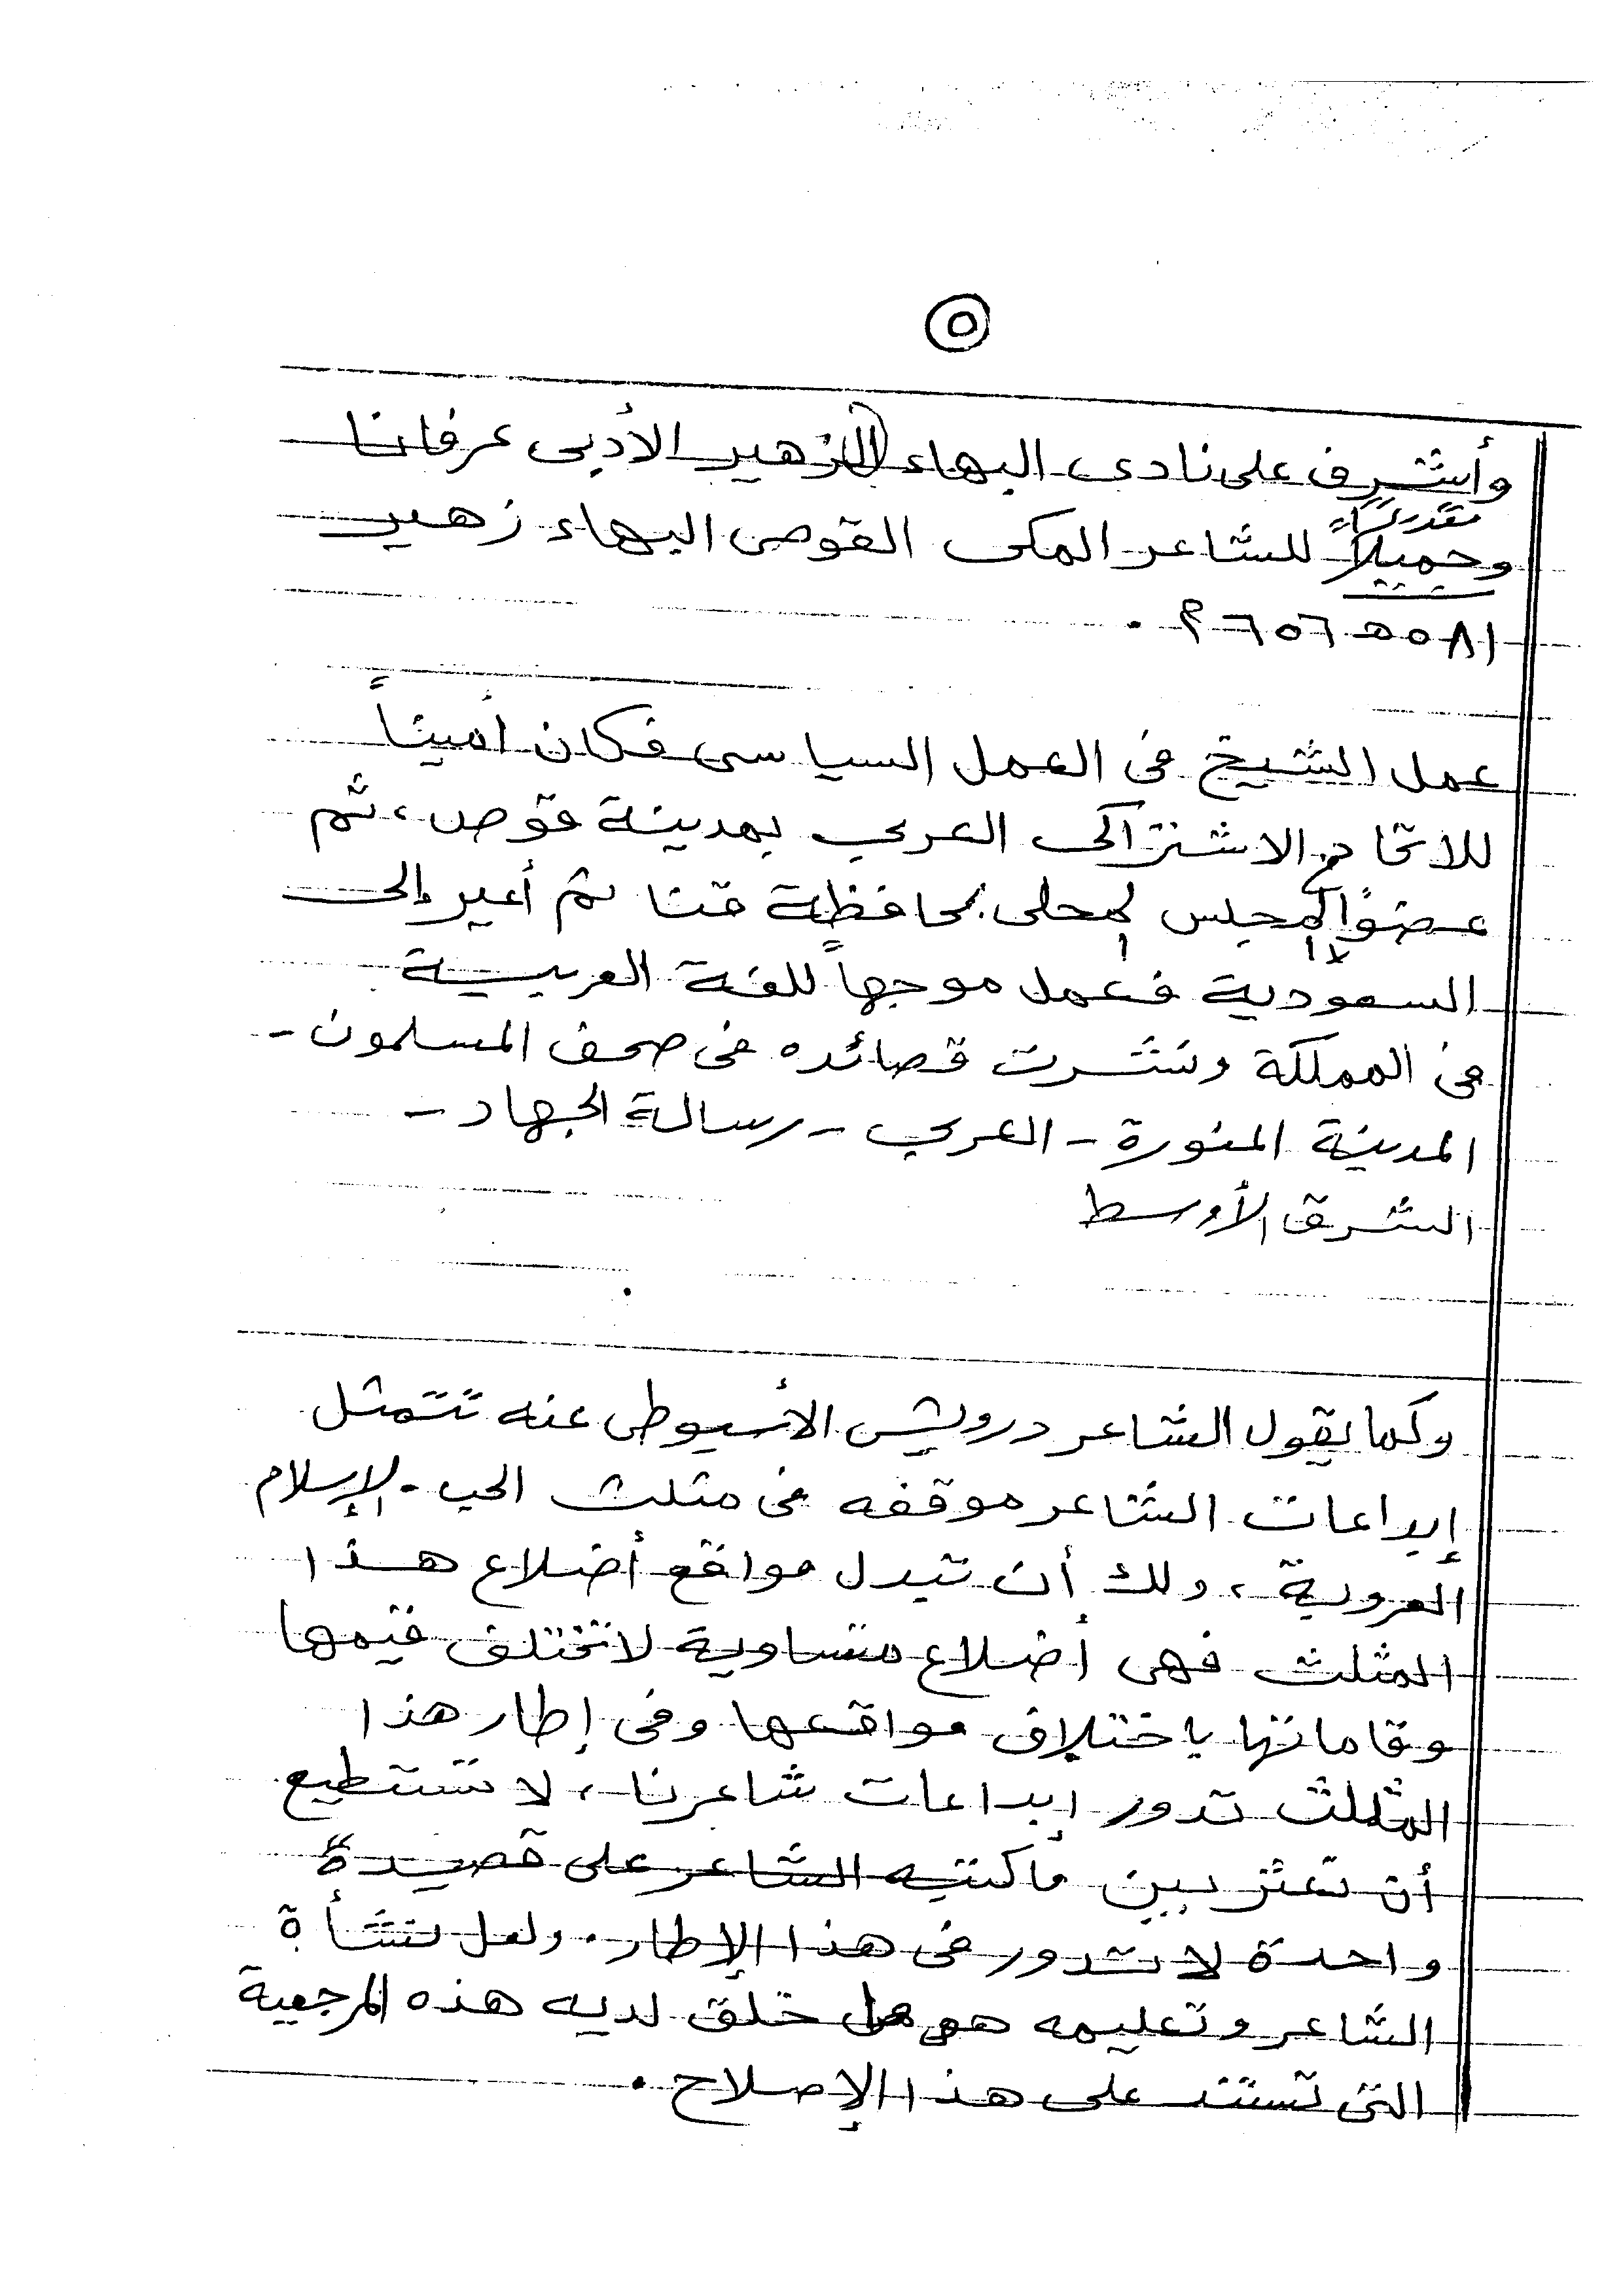 ٥
وأشرف على نادى البهاء (الزهير) الأدبى عرفانا
وتقديرًا
وجميلاً للشاعر المكى القوصى البهاء زهير
٥٨١ هـ ٦٥٦ م .
عمل الشيخ فى العمل السياسى فكان أميناً
للاتحاد الاشتراكى العربى بمدينة قوص، ثم
عضوًا بالمجلس المحلى بمحافظة قنا ثم أعير إلى
السعودية فعمل موجهاً للغة العربية
فى المملكة ونشرت قصائده فى صحف المسلمون -
المدينة المنورة - العربى - رسالة الجهاد -
الشرق الأوسط
وكما يقول الشاعر درويش الأسيوطى عنه تتمثل
إبداعات الشاعر موقفه فى مثلث الحب - الإسلام
العروبة، ولك أن تبدل مواقع أضلاع هذا
المثلث فهى أضلاع متساوية لا تختلف قيمها
وقاماتها باختلاف مواقعها وفى إطار هذا
المثلث تدور إبداعات شاعرنا، لا تستطيع
أن تعثر بين ما كتبه الشاعر على قصيدة
واحدة لا تدور فى هذا الإطار. ولعل نشأة
الشاعر وتعليمه هو ما خلق لديه هذه المرجعية
التى تستند على هذا الإصلاح .